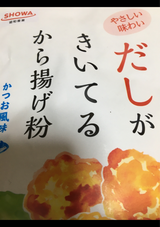 SHOWA
やさしい
味わい
だしが
きいてる
から揚げ粉
かつお風味